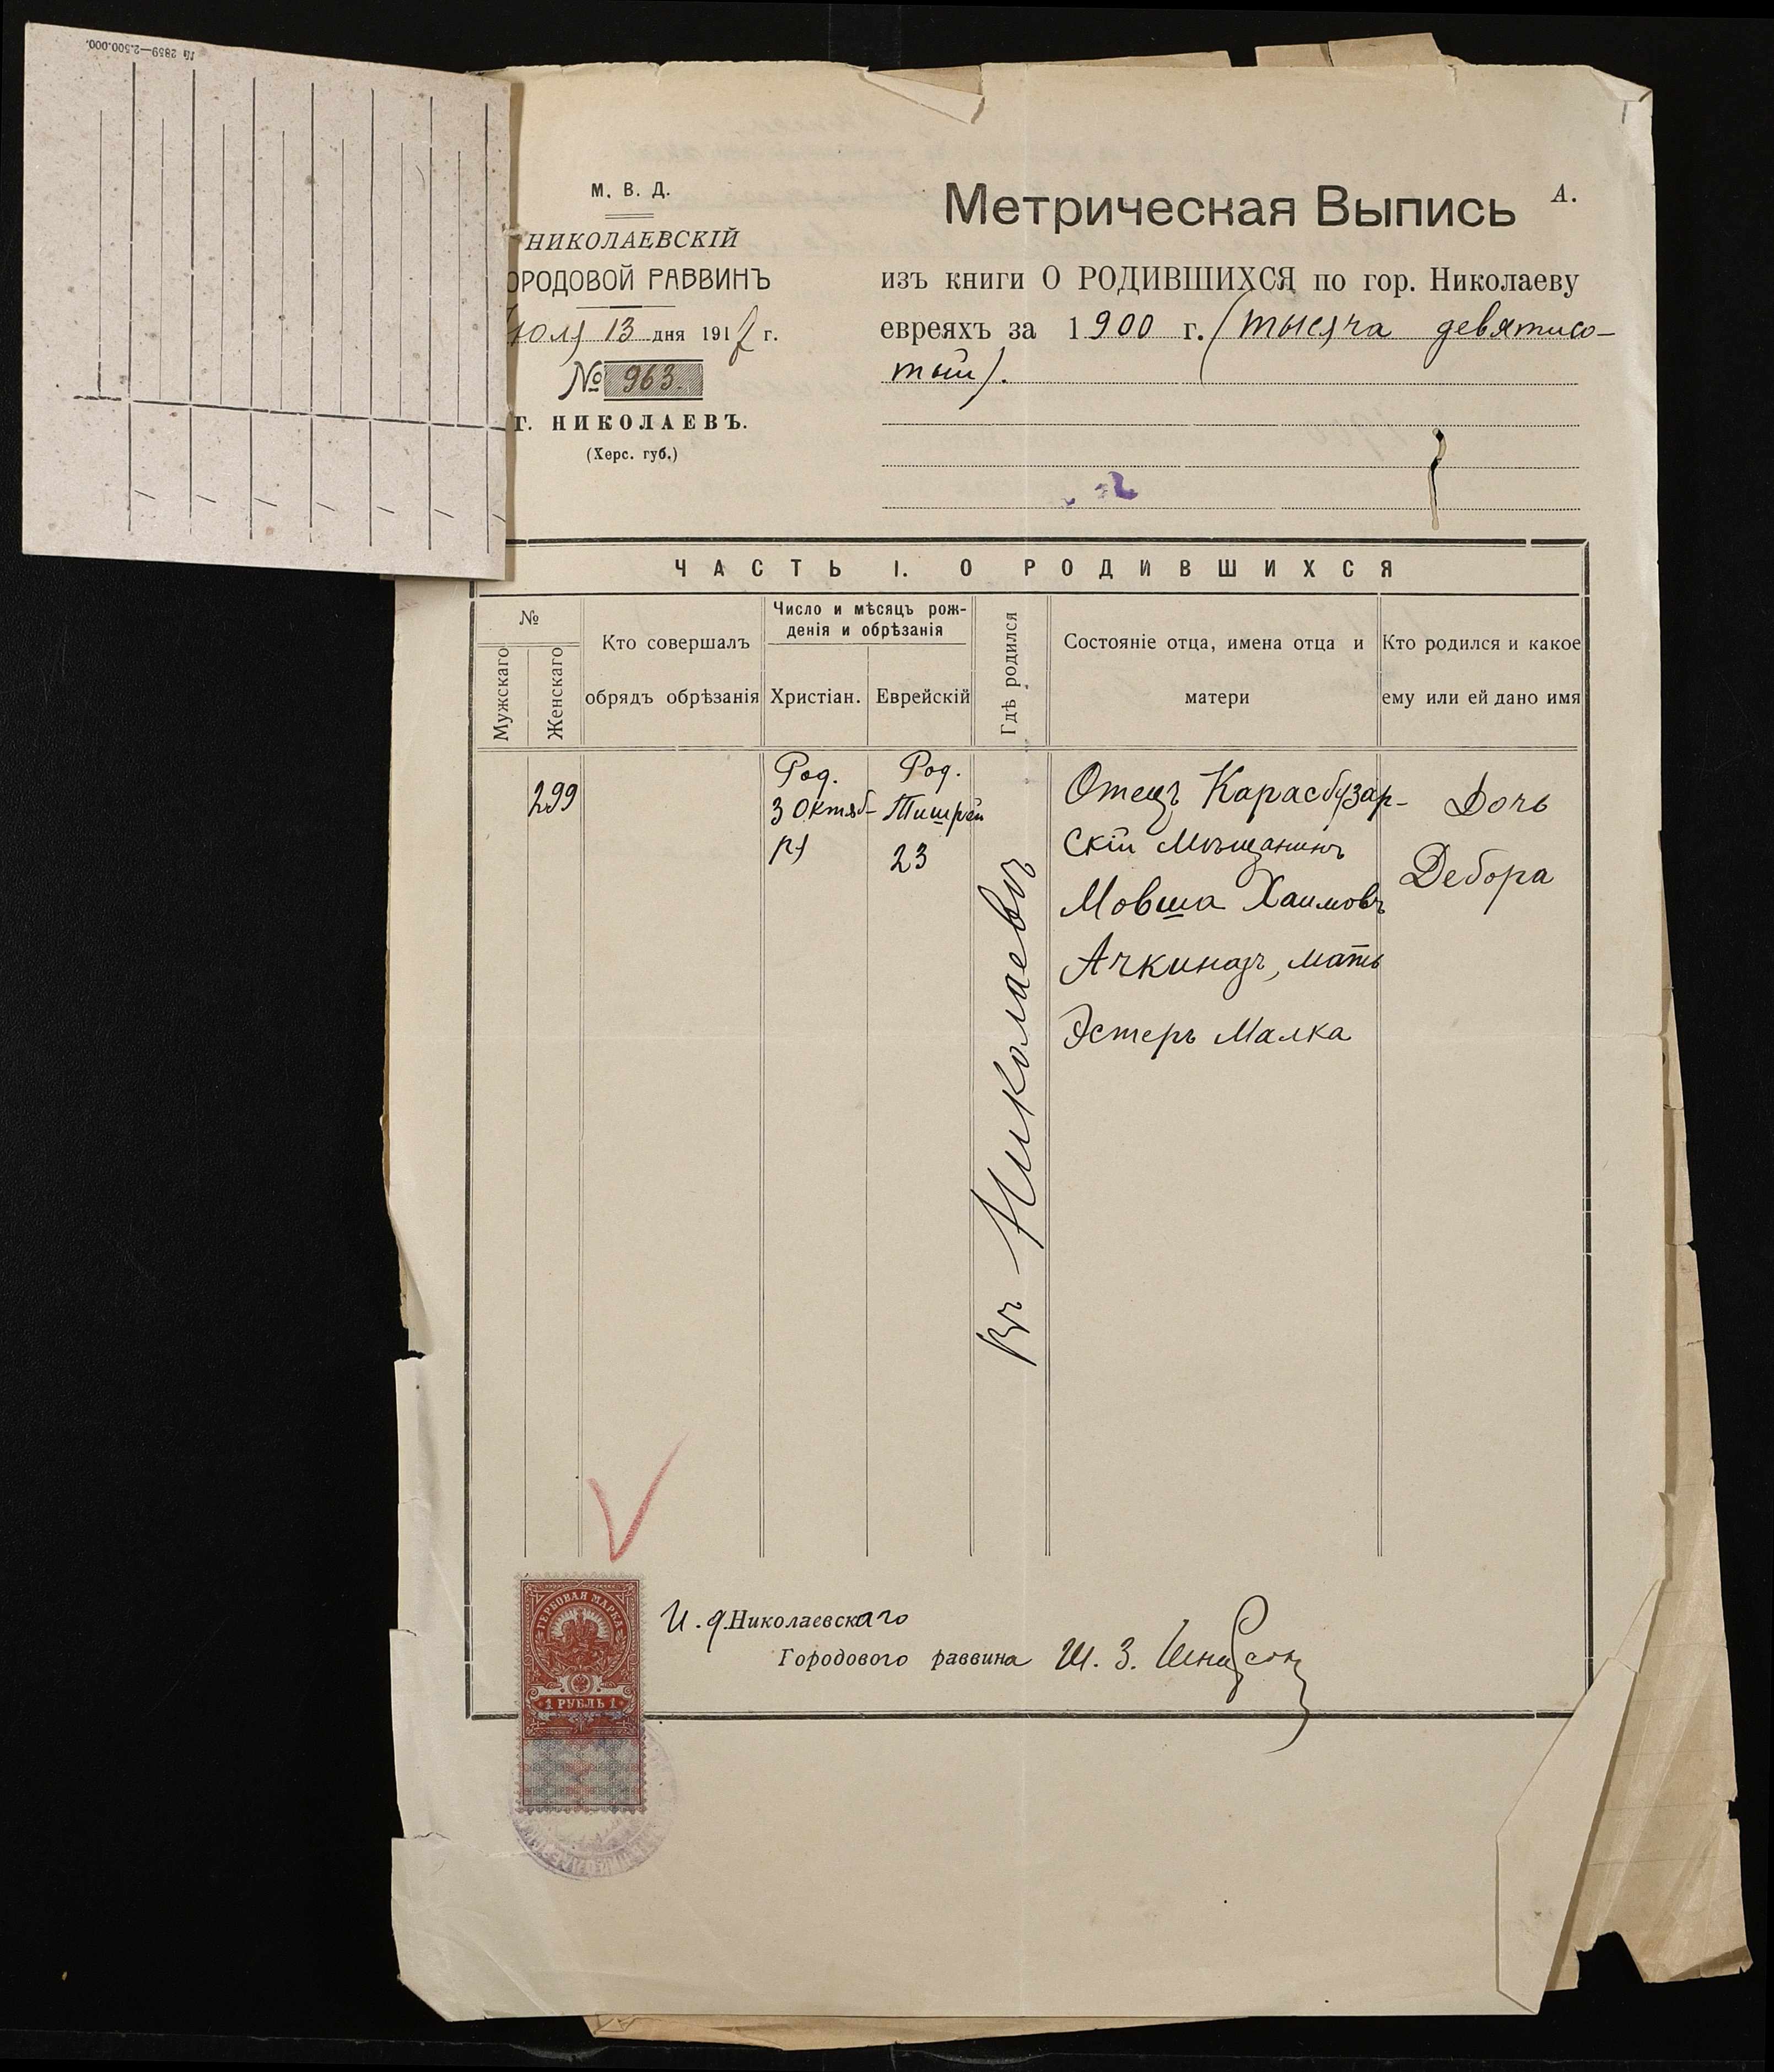 № 2859—2.500.000.
М. В. Д.
НИКОЛАЕВСКІЙ
ОРОДОВОЙ РАВВИНЪ
юля 13 дня 1917 г.
№ 963.
Г. НИКОЛАЕВЪ.
(Херс. губ.)
Метрическая Выпись
А.
изъ книги О РОДИВШИХСЯ по гор. Николаеву
евреяхъ за 1900 г. (тысяча девятисо-
тый).
ЧАСТЬ I. О РОДИВШИХСЯ
№
Мужскаго
Женскаго
Кто совершалъ
обрядъ обрѣзанія
Число и мѣсяцъ рож-
денія и обрѣзанія
Христіан.
Еврейскій
Гдѣ родился
Состояніе отца, имена отца и
матери
Кто родился и какое
ему или ей дано имя
299
Род.
3 Октяб-
ря
Род.
Тишрей
23
въ Николаевѣ
Отецъ Карасбузар-
скій Мѣщанинъ
Мовша Хаимовъ
Ачкиназъ, мать
Эстеръ Малка
Дочь
Дебора
ГЕРБОВАЯ МАРКА
1 РУБЛЬ 1
И. д. Николаевскаго
Городового раввина Ш. З.